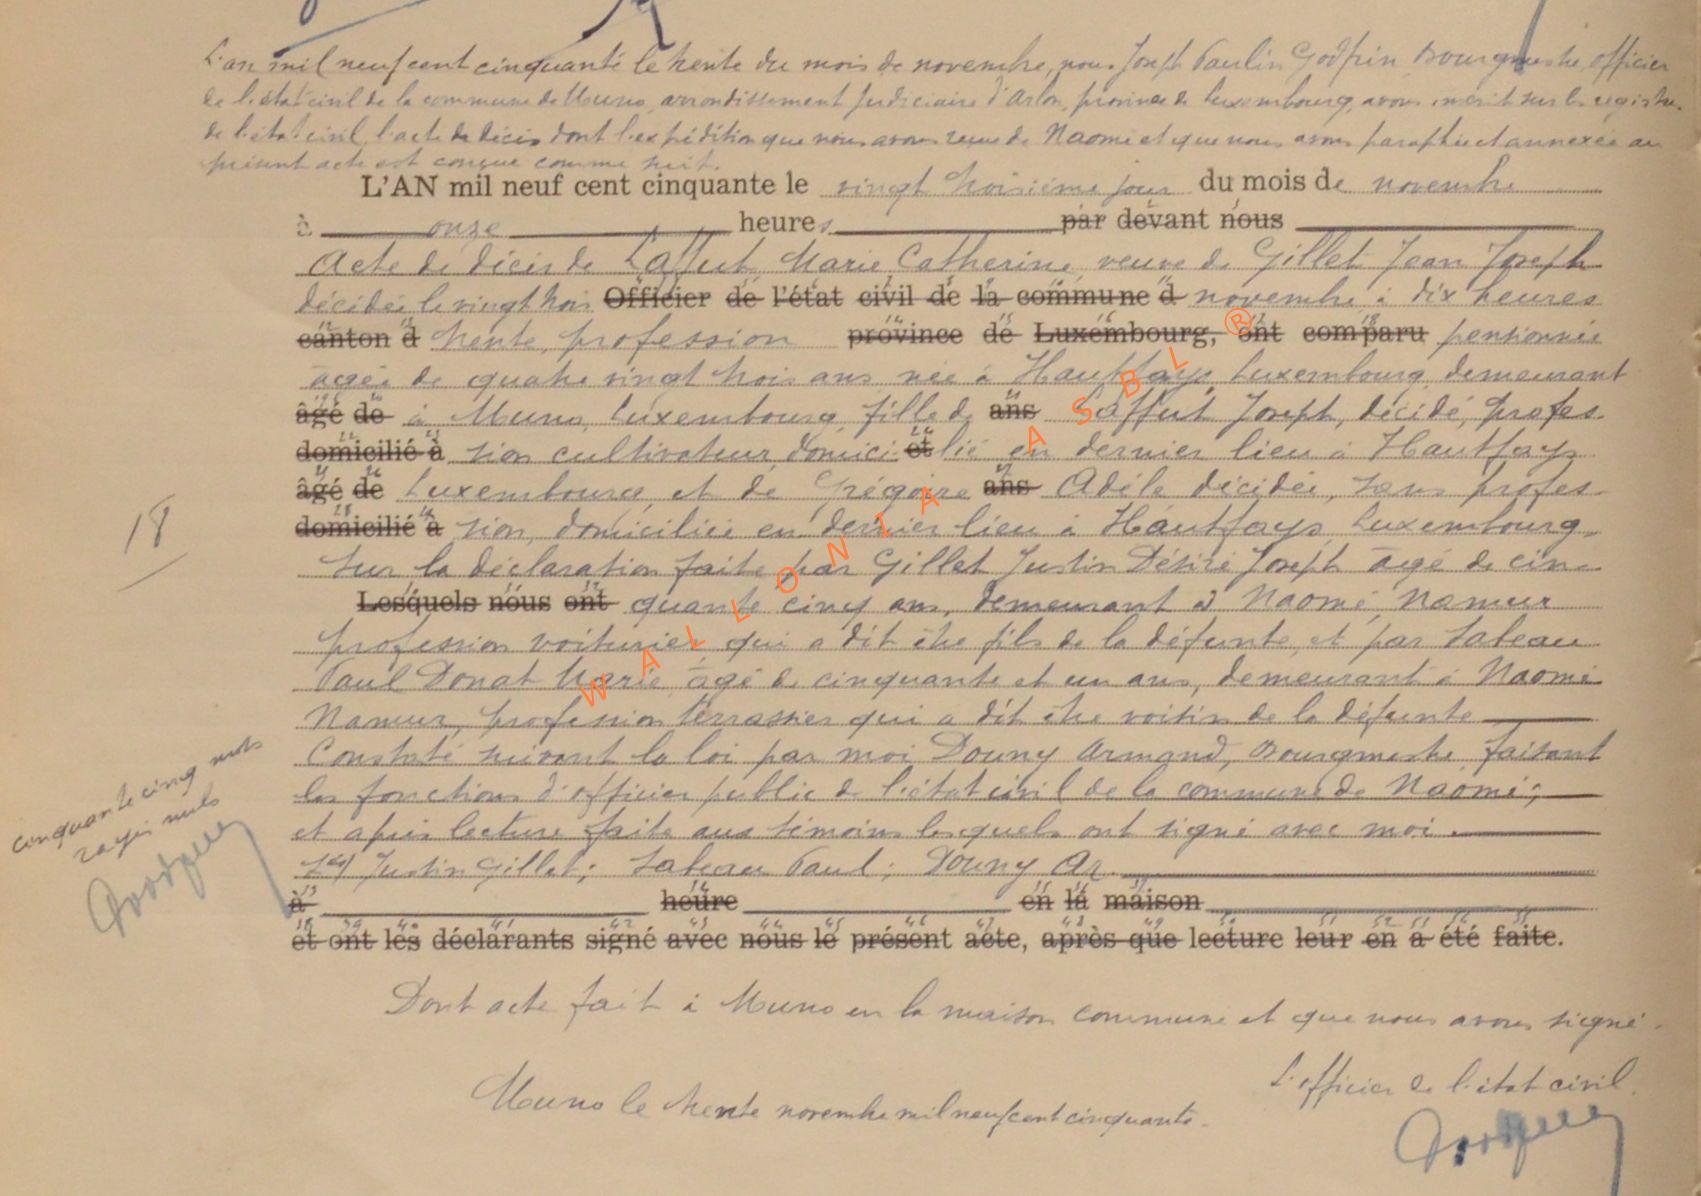 L'an mil neuf cent cinquante le trente du mois de novembre, nous Joseph Paulin Godfrin, Bourgmestre, officier
de l'état civil de la commune de Muno, arrondissement judiciaire d'Arlon, province de Luxembourg, avons inscrit sur le registre
de l'état civil, l'acte de décès dont l'expédition que nous avons reçue de Naomé et que nous avons paraphée et annexée au
présent acte est conçue comme suit.
L'AN mil neuf cent cinquante le vingt troisième jour du mois de novembre
à onze heures par devant nous
Acte de décès de Laffut, Marie Catherine, veuve de Gillet Jean Joseph
décédée le vingt trois Officier de l'état civil de la commune d novembre à dix heures
canton d trente, profession province de Luxembourg, ont comparu pensionnée
agée de quatre vingt trois ans née à Hautfays, Luxembourg, demeurant
âgé de à Muno, Luxembourg, fille de ans Laffut Joseph, décédé, profes-
domicilié à sion cultivateur, domici- et lié en dernier lieu à Hautfays
âgé de Luxembourg, et de Grégoire ans Adèle décédée, sans profes-
domicilié à sion, domiciliée en dernier lieu à Hautfays, Luxembourg
sur la déclaration faite par Gillet Justin Désiré Joseph âgé de cin-
Lesquels nous ont quante cinq ans, demeurant à Naomé, Namur
profession voiturier, qui a dit être fils de la défunte, et par Sateau
Paul Donat Marie, âgé de cinquante et un ans, demeurant à Naomé
Namur, profession terrassier qui a dit être voisin de la défunte
Constaté suivant la loi par moi Douny Armand, Bourgmestre, faisant
les fonctions d'officier public de l'état civil de la commune de Naomé;
et après lecture faite aux témoins lesquels ont signé avec moi.
Justin Gillet; Sateau Paul; Douny Ar.
à heure en la maison
et ont les déclarants signé avec nous le présent acte, après que lecture leur en a été faite.
18
cinquante cinq mots
rayés nuls
Dont acte fait à Muno en la maison commune et que nous avons signé.
Muno le trente novembre mil neuf cent cinquante.
L'officier de l'état civil.
WALLONIA ASBL ®